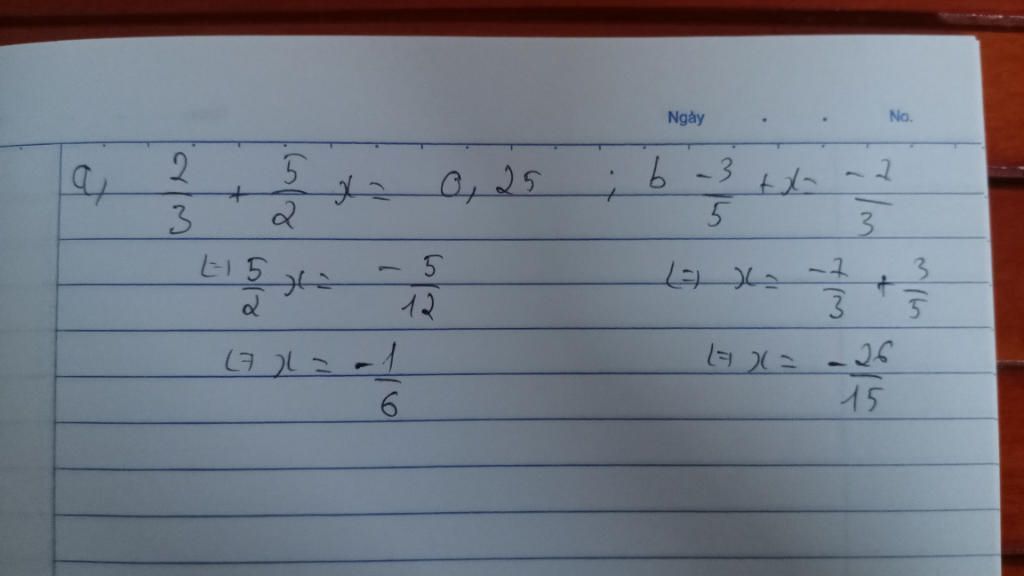 Ngày . . No.
a, 2/3 + 5/2 x = 0,25 ; b -3/5 + x = -7/3
(=) 5/2 x = -5/12 (=) x = -7/3 + 3/5
(=) x = -1/6 (=) x = -26/15